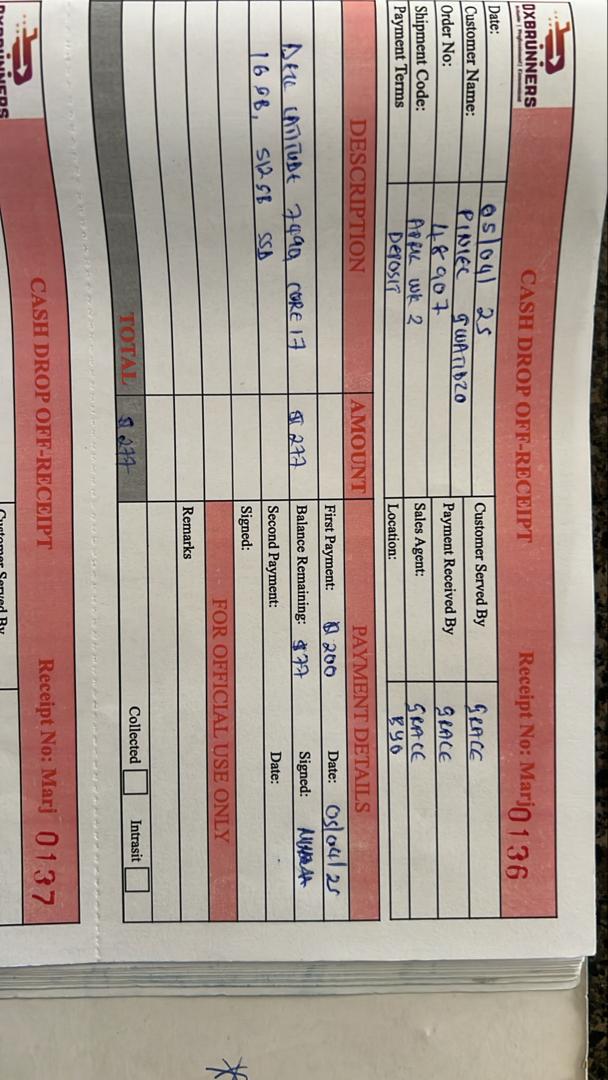 DXBRUNNERS
CASH DROP OFF-RECEIPT Receipt No: Marj 0136
Date: 05/04/25 Customer Served By GRACE
Customer Name: Payment Received By GRACE
Order No: 48907 Sales Agent: GRACE
Shipment Code: APRIL WK 2 Location: BYO
Payment Terms DEPOSIT
DESCRIPTION AMOUNT PAYMENT DETAILS
First Payment: $200 Date: 05/04/25
DELL LATITUDE 7490, CORE I7 $277 Balance Remaining: $77 Signed:
16 GB, 512 GB SSD Second Payment: Date:
Signed:
FOR OFFICIAL USE ONLY
Remarks
TOTAL $277 Collected Intrasit
DXBRUNNERS
CASH DROP OFF-RECEIPT Receipt No: Marj 0137
Customer Served By